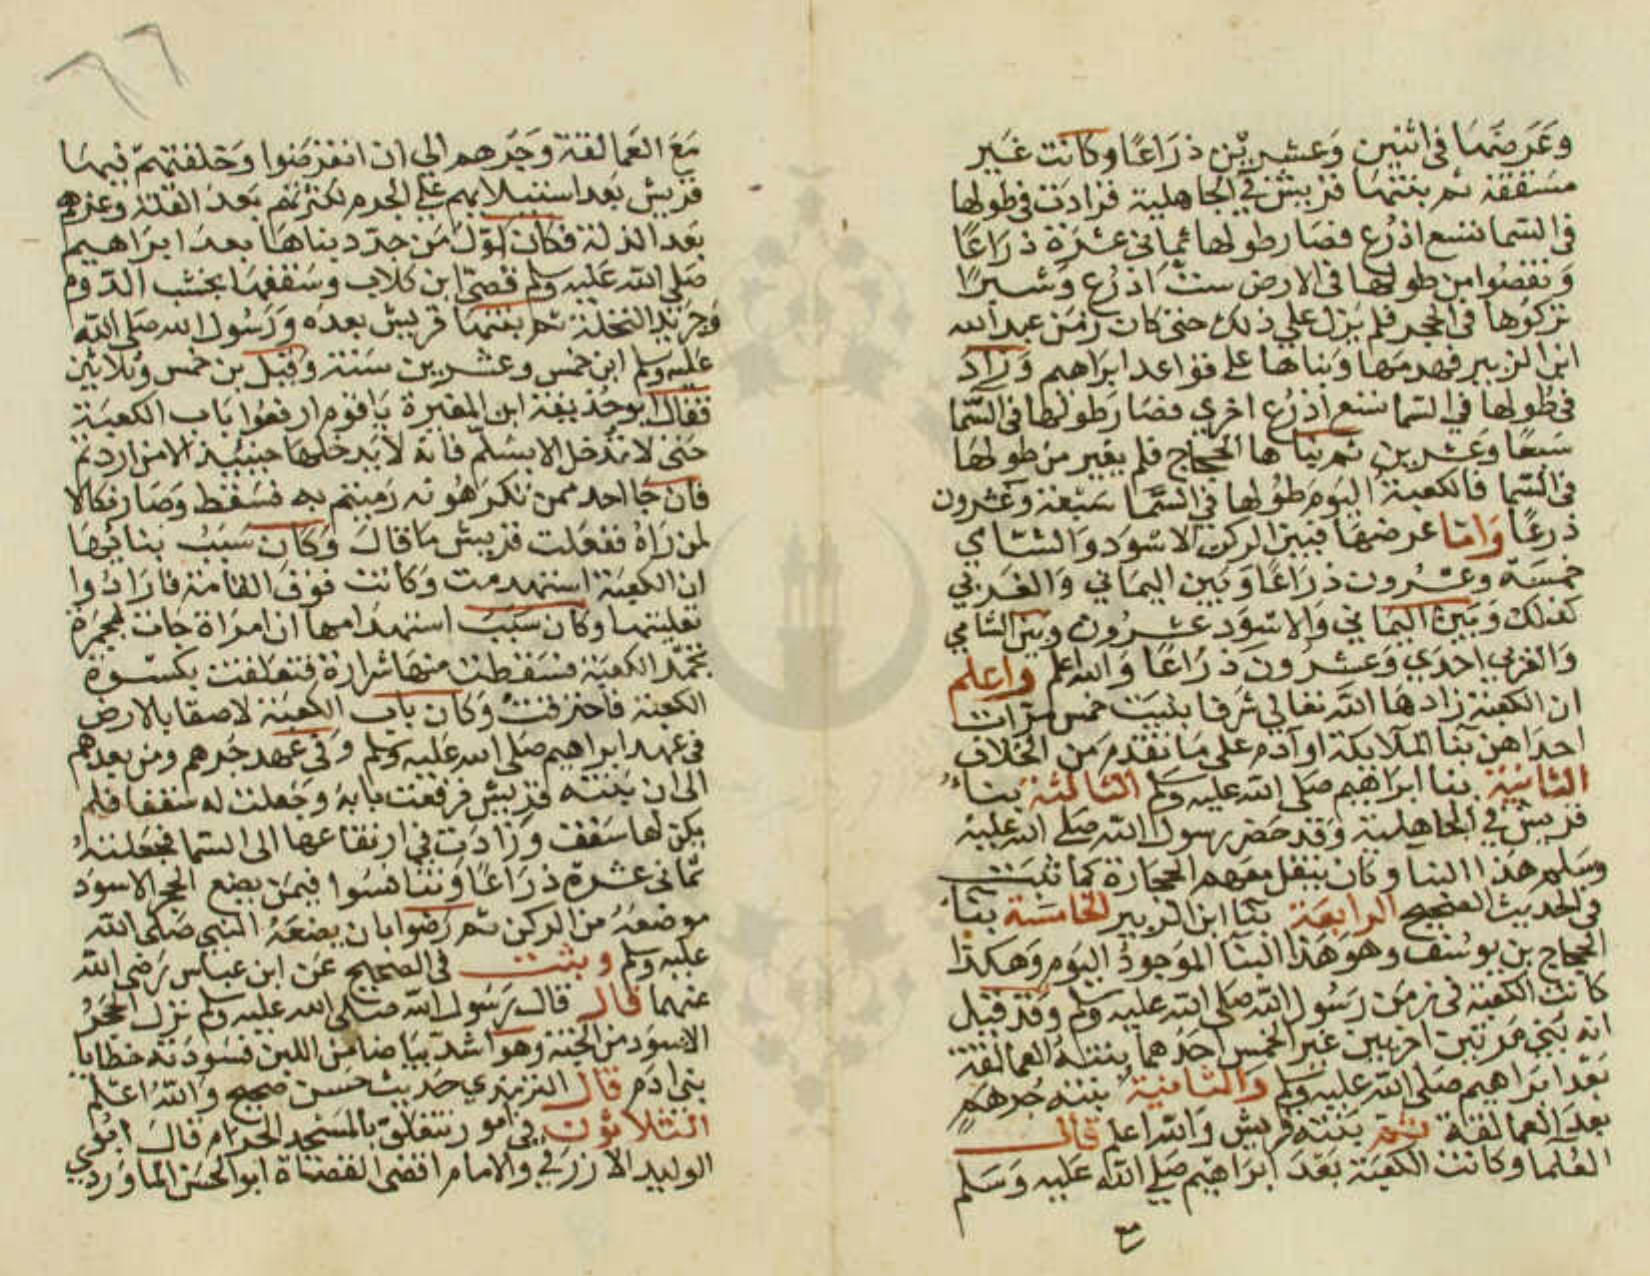 وعَرضها في اثنين وعشرين ذراعًا وكانت غير
مسقفة ثم بنتها قريش في الجاهلية فزادت في طولها
في السما تسع اذرع فصار طولها ثماني عشرة ذراعًا
ونقصوا من طولها في الارض ست اذرع وشبرًا
تركوها في الحجر فلم يزل على ذلك حتى كان زمن عبد الله
ابن الزبير فهدمها وبناها على قواعد ابراهيم وزاد
في طولها في السما تسع اذرع اخري فصار طولها في السما
سبعًا وعشرين ثم بناها الحجاج فلم يغير من طولها
في السما فالكعبة اليوم طولها في السما سبعة وعشرون
ذرعًا واما عرضها فبين الركن الاسود والشامي
خمسة وعشرون ذراعًا وبين اليماني والغربي
كذلك وبين اليماني والاسود عشرون وبين الشامي
والغربي احدي وعشرون ذراعًا والله اعلم واعلم
ان الكعبة زادها الله تعالي شرفا بنيت خمس مرات
احداهن بنا الملايكة او آدم على ما تقدم من الخلاف
الثانية بنا ابراهيم صلى الله عليه وسلم الثالثة بناء
قريش في الجاهلية وقد حضر رسول الله صلى الله عليه
وسلم هذا البنا وكان ينقل معهم الحجارة كما ثبت
في الحديث الصحيح الرابعة بنا ابن الزبير الخامسة بنا
الحجاج بن يوسف وهو هذا البنا الموجود اليوم وهكذا
كانت الكعبة في زمن رسول الله صلى الله عليه وسلم وقد قيل
انه بني مرتين اخريين غير الخمس احدهما بنته العمالقة
بعد ابراهيم صلى الله عليه وسلم والثانية بنته جرهم
بعد العمالقة ثم بنته قريش والله اعلم قال
العلما وكانت الكعبة بعد ابراهيم صلى الله عليه وسلم
مع
٦٦
مع العمالقة وجرهم الي ان انقرضوا وخلفتهم فيها
قريش بعد استيلايهم على الحرم لكثرتهم بعد القلة وعزهم
بعد الذلة فكان اول من جدد بناها بعد ابراهيم
صلى الله عليه وسلم قصي ابن كلاب وسقفها بخشب الدوم
وجريد النخلة ثم بنتها قريش بعده ورسول الله صلى الله
عليه وسلم ابن خمس وعشرين سنة وقيل بن خمس وثلاثين
فقال ابو حذيفة ابن المغيرة يا قوم ارفعوا باب الكعبة
حتى لا تدخل الا بسلم فانه لا يدخلها حينيذ الا من اردتم
فان جا احد ممن تكرهونه رميتم به فسقط وصار نكالا
لمن راه ففعلت قريش ما قال وكان سبب بنائها
ان الكعبة استهدمت وكانت فوق القامة فارادوا
تعليتها وكان سبب استهدامها ان امراة جات بمجمرة
تجمر الكعبة فسقطت منها شرارة فتعلقت بكسوة
الكعبة فاحترقت وكان باب الكعبة لاصقا بالارض
في عهد ابراهيم صلى الله عليه وسلم وفي عهد جرهم ومن بعدهم
الى ان بنته قريش فرفعت بابه وجعلت له سقفا فلم
يكن لها سقف وزادت في ارتفاعها الى السما فجعلته
ثماني عشرة ذراعًا وتنافسوا فيمن يضع الحجر الاسود
موضعه من الركن ثم رضوا بان يضعه النبي صلى الله
عليه وسلم وثبت في الصحيح عن ابن عباس رضي الله
عنهما قال قال رسول الله صلى الله عليه وسلم نزل الحجر
الاسود من الجنة وهو اشد بياضا من اللبن فسودته خطايا
بني ادم قال الترمذي حديث حسن صحيح والله اعلم
الثلاثون في امور تتعلق بالمسجد الحرام قال ابوي
الوليد الازرقي والامام اقضى القضاة ابو الحسن الماوردي